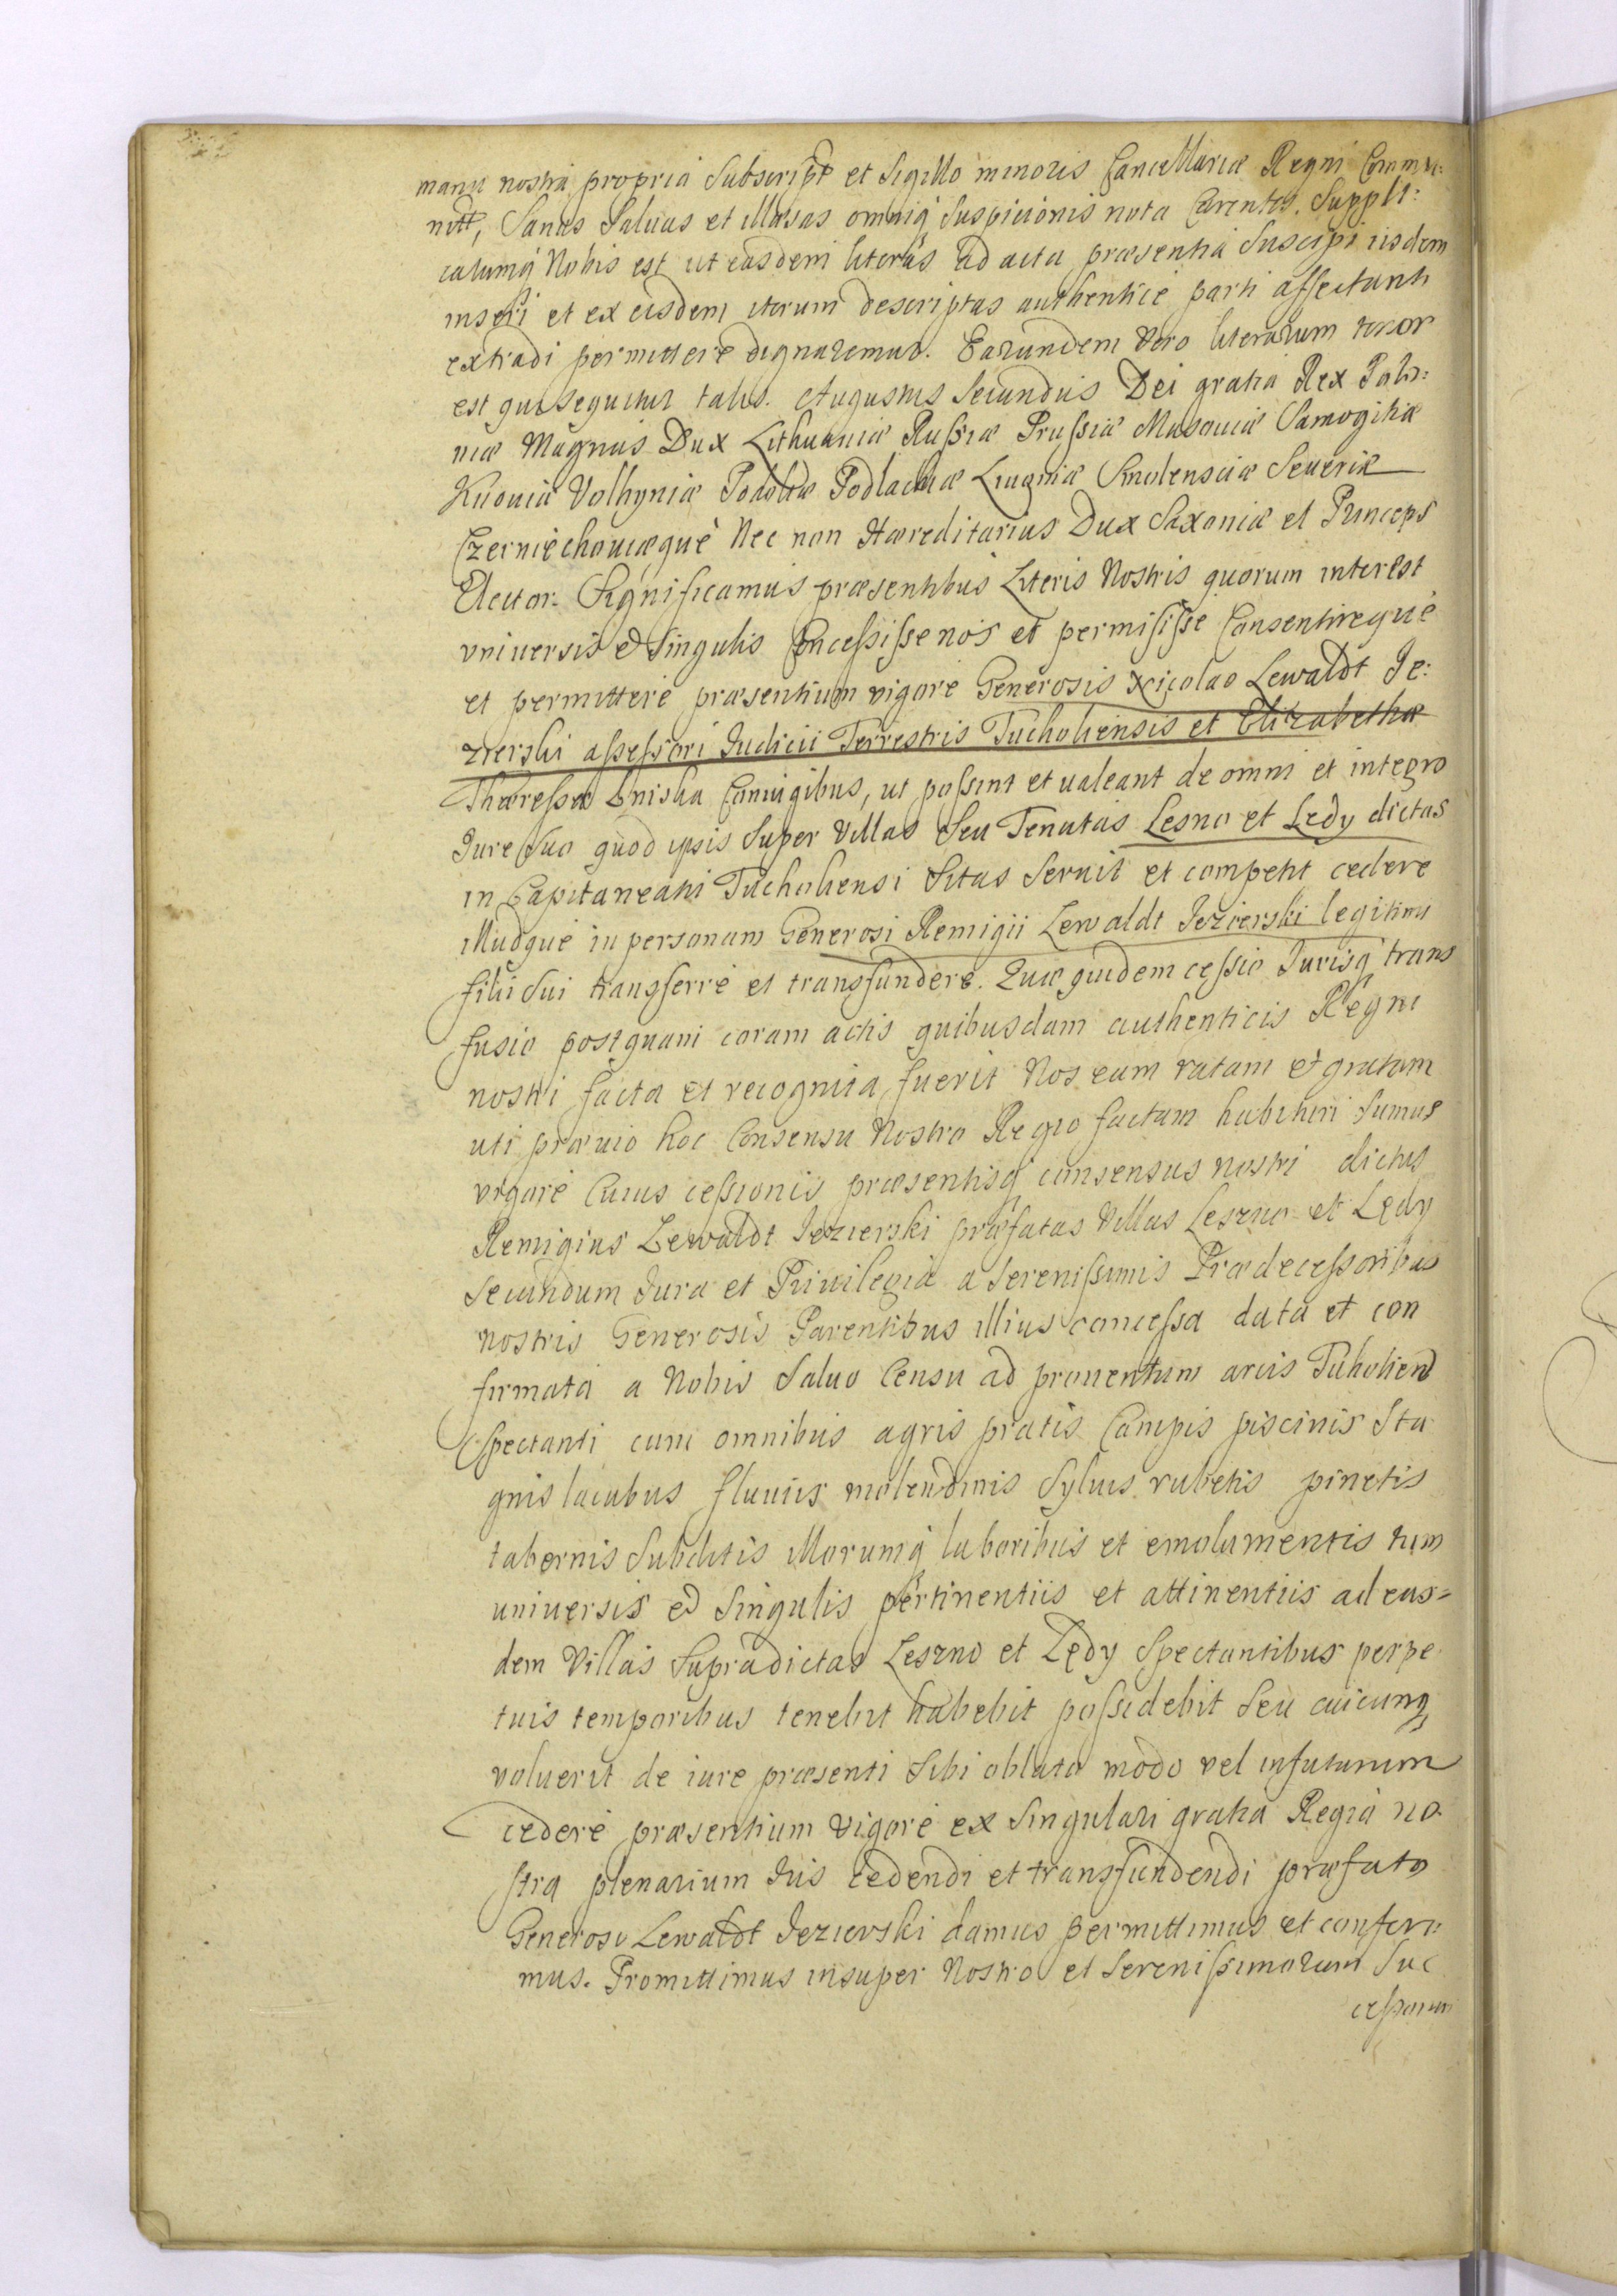 manu nostra propria Subscript et Sigillo minoris Cancellariæ Regni Commu:
nitt, Sanas Saluas et illæsas omniq Suspicionis nota Carentes. Suppli:
catumq Nobis est ut easdem literas ad acta præsentia Suscipi iisdem
inseri et ex eisdem iterum descriptas authentice parti affectanti
extradi permittere dignaremur. Earundem Vero literarum tenor
est qui sequitur talis. Augustus Secundus Dei gratia Rex Polo:
niæ Magnus Dux Lithuaniæ Russiæ Prussiæ Masouiæ Samogitiæ
Kijouiæ Volhyniæ Podoliæ Podlachiæ Liuoniæ Smolensciæ Seueriæ
Czerniechouiæque Nec non Hæreditarius Dux Saxoniæ et Princeps
Elector. Significamus præsentibus Literis Nostris quorum interest
vniuersis et Singulis Concessisse nos et permisisse Consentireque
et permittere præsentium vigore Generosis Nicolao Lewaldt Je:
zierski assessori Judicii Terrestris Tucholiensis et Elizabethæ
Thæressæ Coniugibus, ut possint et ualeant de omni et integro
Jure Suo quod ipsis Super Villas Seu Tenutas Lesno et Lędy dictas
in Capitaneatu Tucholiensi Sitas Seruit et competit cedere
illudque in personam Generosi Remigii Lewaldt Jezierski legitimi
filii Sui transferre et transfundere. Quæ quidem cessio Jurisq trans
fusio postquam coram actis quibusdam authenticis Regni
nostri facta et recognita fuerit Nos eam ratam et gratam
uti præuio hoc Consensu Nostro Regio factam habituri Sumus
vigore Cuius cessionis præsentisq consensus nostri dictus
Remigius Lewaldt Jezierski præfatas Villas Leszno et Lędy
Secundum Jura et Priuilegia a Serenissimis Prædecessoribus
nostris Generosis Parentibus illius concessa data et con
firmata a Nobis Saluo Censu ad prouentum arcis Tuholien
Spectanti cum omnibus agris pratis Campis piscinis Sta
gnis lacubus fluuiis molendinis Syluis rubetis pinetis
tabernis Subditis illorumq laboribus et emolumentis tum
uniuersis et Singulis pertinentiis et attinentiis ad eas=
dem Villas Supradictas Leszno et Lędy Spectantibus perpe
tuis temporibus tenebit habebit possidebit Seu cuicunq
voluerit de iure præsenti Sibi oblato modo vel infuturum
cedere præsentium vigore ex Singulari gratia Regia no
stra plenarium Jus cedendi et transfundendi præfato
Generoso Lewaldt Jezierski damus permittimus et conferi
mus. Promittimus insuper Nostro et Serenissimorum Suc
cessorum